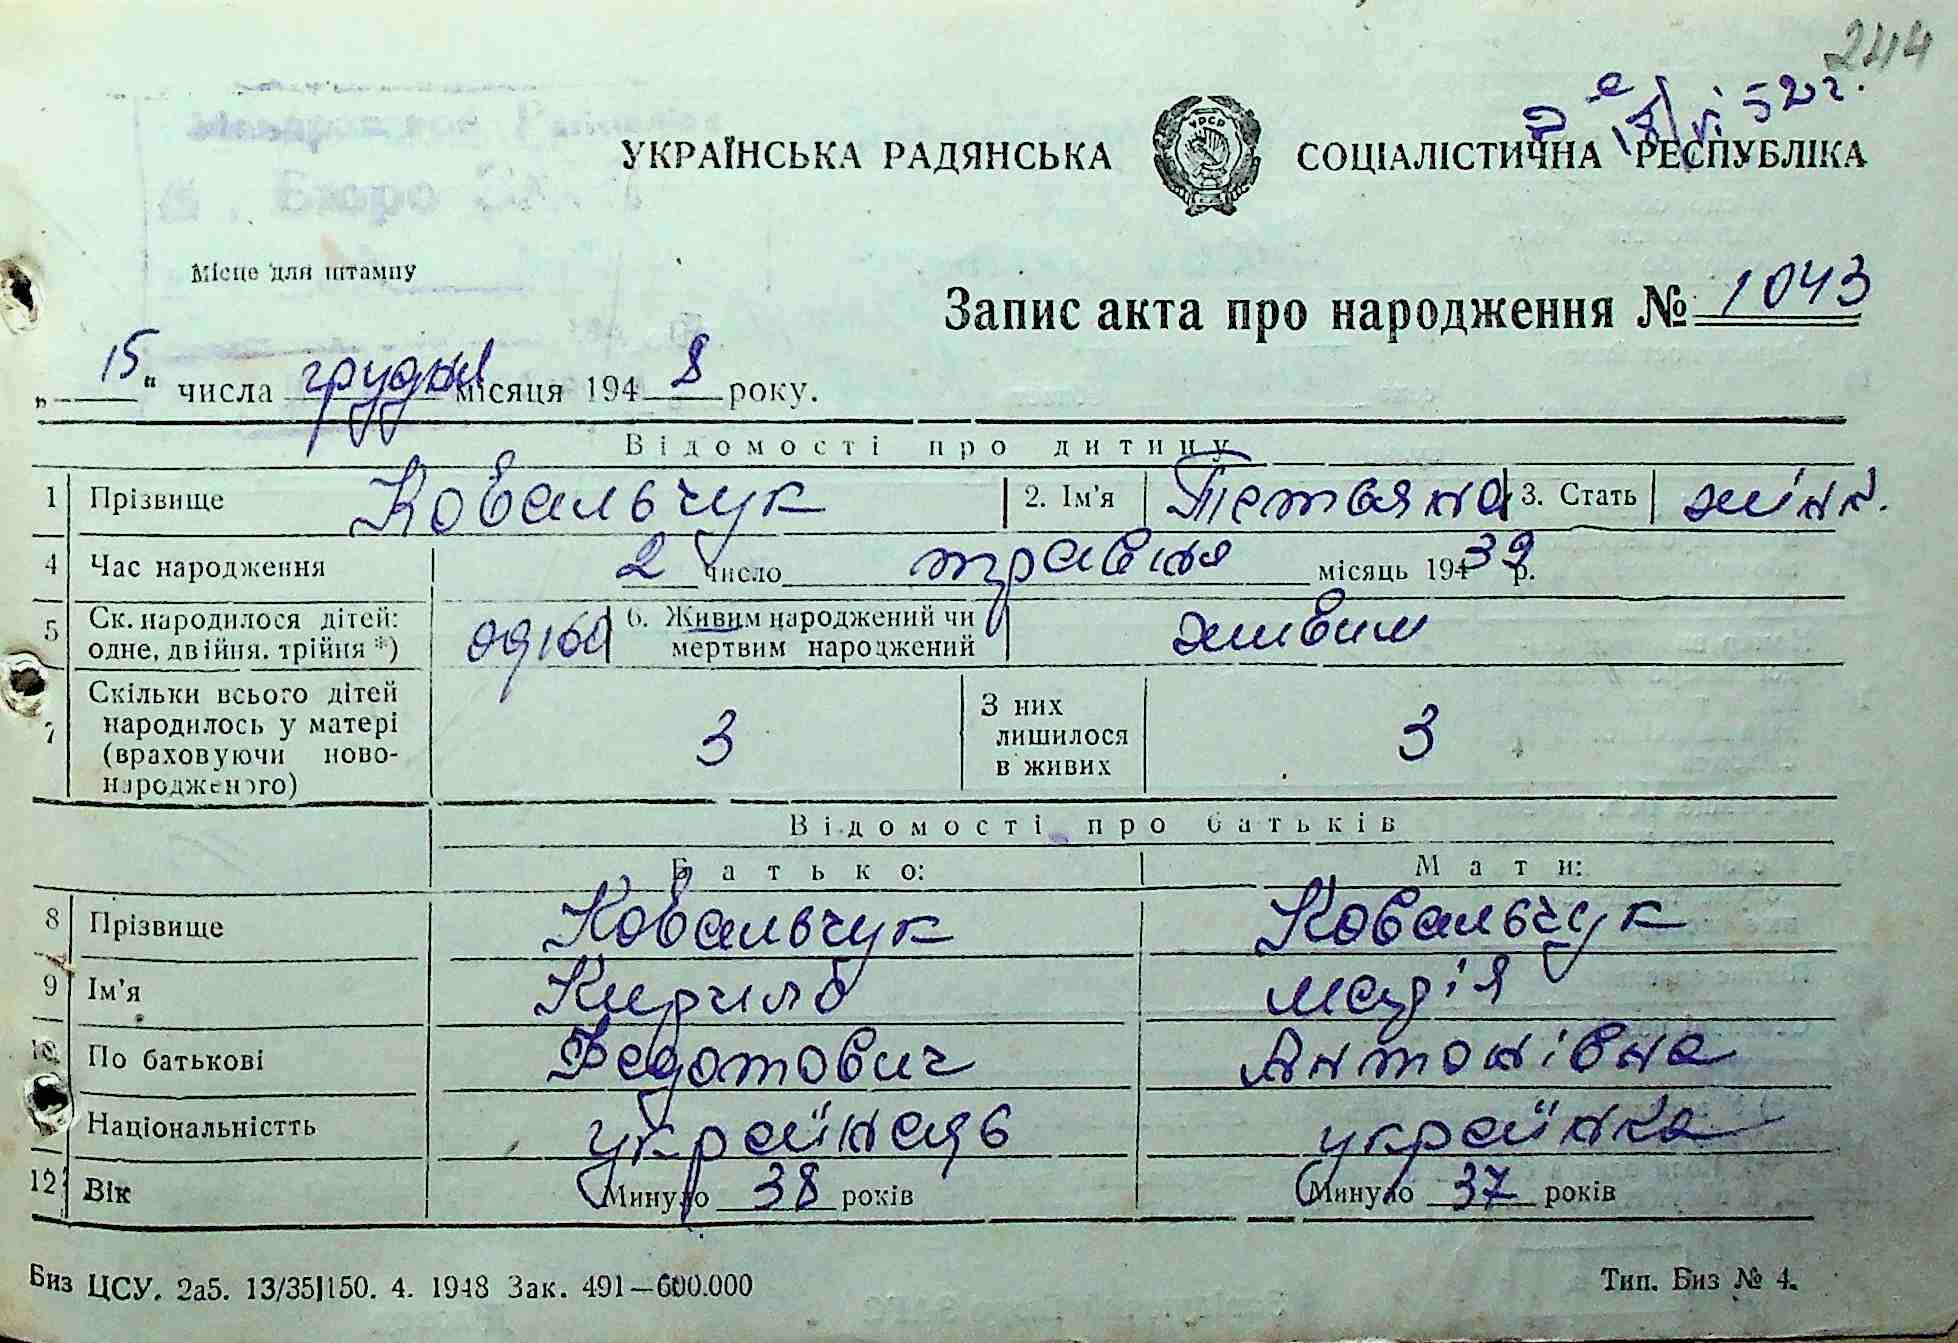 244
52 г.
УКРАЇНСЬКА РАДЯНСЬКА СОЦІАЛІСТИЧНА РЕСПУБЛІКА
УРСР
Бюро
Місце для штампу
Запис акта про народження № 1043
„15“ числа грудня місяця 1948 року.
Відомості про дитину
1 Прізвище Ковальчук 2. Ім'я Тетьяна 3. Стать жінк.
4 Час народження 2 число травня місяць 194 39 р.
5 Ск. народилося дітей: одне, двійня. трійня *) одна 6. Живим народжений чи мертвим народжений живим
7 Скільки всього дітей народилось у матері (враховуючи ново-народженого) 3 З них лишилося в живих 3
Відомості про батьків
Батько: Мати:
8 Прізвище Ковальчук Ковальчук
9 Ім'я Кирило Марія
10 По батькові Федотович Антонівна
Національністть українець українка
12 Вік Минуло 38 років Минуло 37 років
Биз ЦСУ. 2а5. 13/35|150. 4. 1948 Зак. 491—600.000 Тип. Биз № 4.